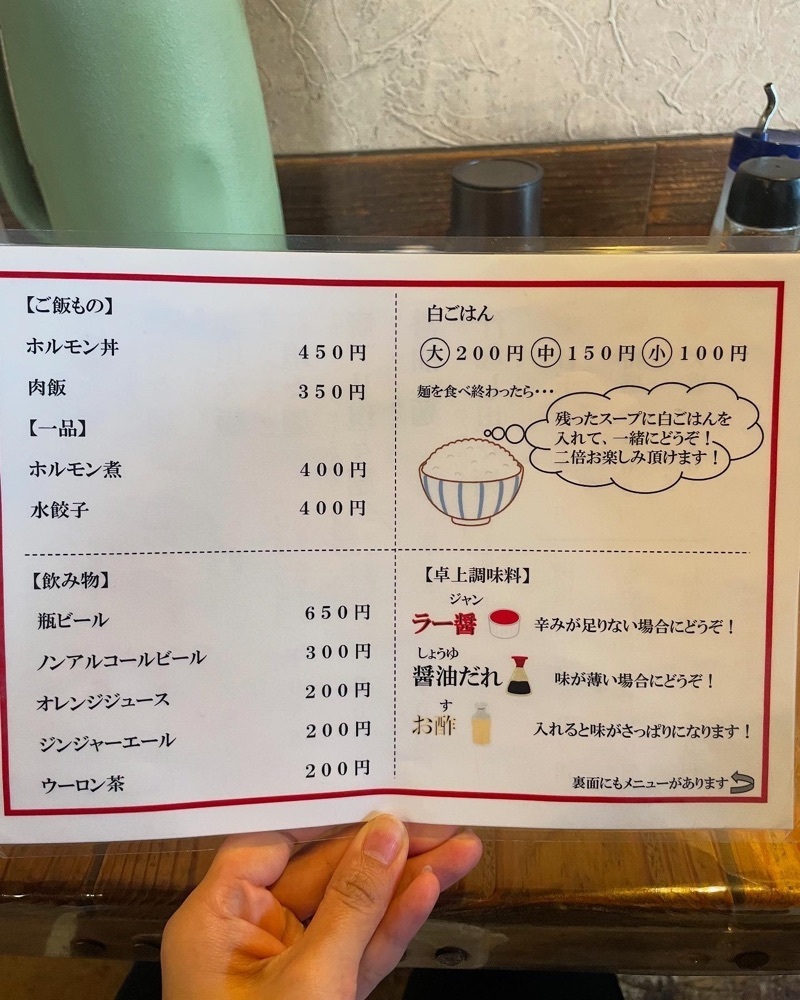 【ご飯もの】
ホルモン丼 450円
肉飯 350円
【一品】
ホルモン煮 400円
水餃子 400円
白ごはん
大 200円 中 150円 小 100円
麺を食べ終わったら・・・
残ったスープに白ごはんを
入れて、一緒にどうぞ！
二倍お楽しみ頂けます！
【飲み物】
瓶ビール 650円
ノンアルコールビール 300円
オレンジジュース 200円
ジンジャーエール 200円
ウーロン茶 200円
【卓上調味料】
ジャン
ラー醤 辛みが足りない場合にどうぞ！
しょうゆ
醤油だれ 味が薄い場合にどうぞ！
す
お酢 入れると味がさっぱりになります！
裏面にもメニューがあります